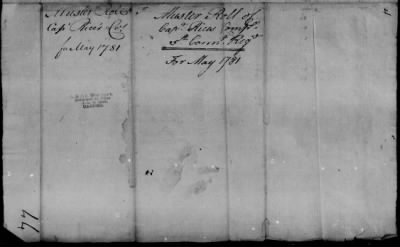 Muster Roll
Capt Rice's Coy
for May 1781
Muster Roll of
Capt Rice Compy
5th Conn. Regt
For May 1781
77